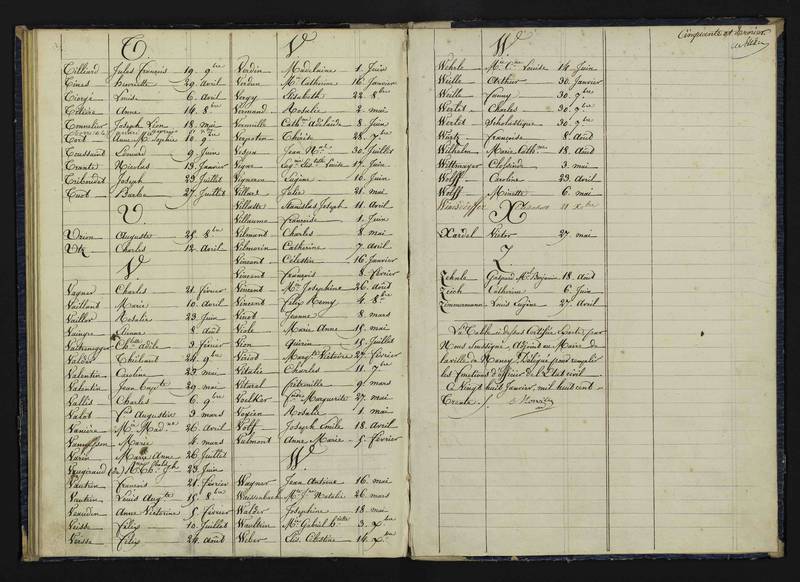 T
Tilliard Jules François 19. 9bre
Tinus Henriette 29. avril
Tiorje Louise 6. Avril
Anne 14. 8bre
Tonnelier Joseph Léon 18. mai
Tort Anne Me Sophie 10. 9bre
Toussaint Léonard 9. Juin
Nicolas 13. Janvier
Triboudet Joseph 23 Juillet
Tuot Barbe 27. Juillet
U
Urion Auguste 25. 8bre
Utz Charles 12. Avril
V
Vagner Charles 21. février
Vaillant Marie 10. Avril
Vaillot Rosalie 23. Juin
Vaingre Etienne 8. Août
adèle 3. février
Valdet Thiébaut 24. 9bre
Valentin Caroline 23. mai
Valentin Jean Bapte 29. mai
Vallet Charles 6. 9bre
Valot Augustin 3. mars
Vanière 26. Avril
Marie 4. mars
Varin Marie Anne 26. Juillet
23. Juin
Vautrin François 21. février
Vautrin Louis Augte 15. 8bre
Vaudin Anne Victorine 5. février
Veisse Félix 10. Juillet
Veisse Félix 24. Août
V
Verdin Madelaine 1. Juin
Verdun Me Catherine 18. Janvier
Vergy Elisabeth 22. 8bre
Vermand Rosalie 2. mai
Cathne Adélaïde 8. Juin
Thérèse 28. 7bre
Jean 30. Juillet
Vigne Louise 17. Juin
Vigneron Eugène 10. Juin
Villard Julie 21. mai
Villatte Stanislas Joseph 11. Avril
Villaume Françoise 1. Juin
Vilmant Charles 8. mai
Vilmorin Catherine 7. avril
Vincent Célestin 16. Janvier
Vincent François 8. février
Vincent Me Joséphine 26. Août
Vincent Félix Remy 4. 8bre
Vinot Jeanne 8. mars
Marie Anne 15. mai
Vion 15. Juillet
Viriot Margte Victoire 27. février
Vitalis Charles 11. 7bre
9. mars
Voelker Marguerite 27. mai
Rosalie 1. mai
Volff Joseph Emile 18. Avril
Vulmont Anne Marie 5. février
W
Wagner Jean Antoine 16. mai
Weissenbach Natalie 26. mars
Walder Joséphine 18. mai
Me Gabriel 3. Xbre
Weber Célestine 14. Xbre
Cinquante et dernier
W
Wehrle Louise 14. Juin
Weille Arthur 30. Janvier
Weill Fanny 30. 7bre
Wertel Charles 30. 9bre
Wertet Scholastique 30. 9bre
Wurtz Françoise 8. Août
Wilhelm Marie Cathne 18. Août
Wittmayer Clotilde 3. mai
Wolff Caroline 23. Avril
Wolff Minette 6. mai
21. Xbre
X
Xardel Victor 27. mai
Z
Gaspard Me Benjamin 18. Août
Zeich Catherine 6. Juin
Zimmermann Louis Eugène 27. Avril
La Table ci dessus certifiée exacte par
Nous soussigné, Adjoint au Maire de
la ville de Nancy, délégué pour remplir
les fonctions d'officier de l'Etat civil.
Ce Vingt huit Janvier, mil huit cent
Trente.